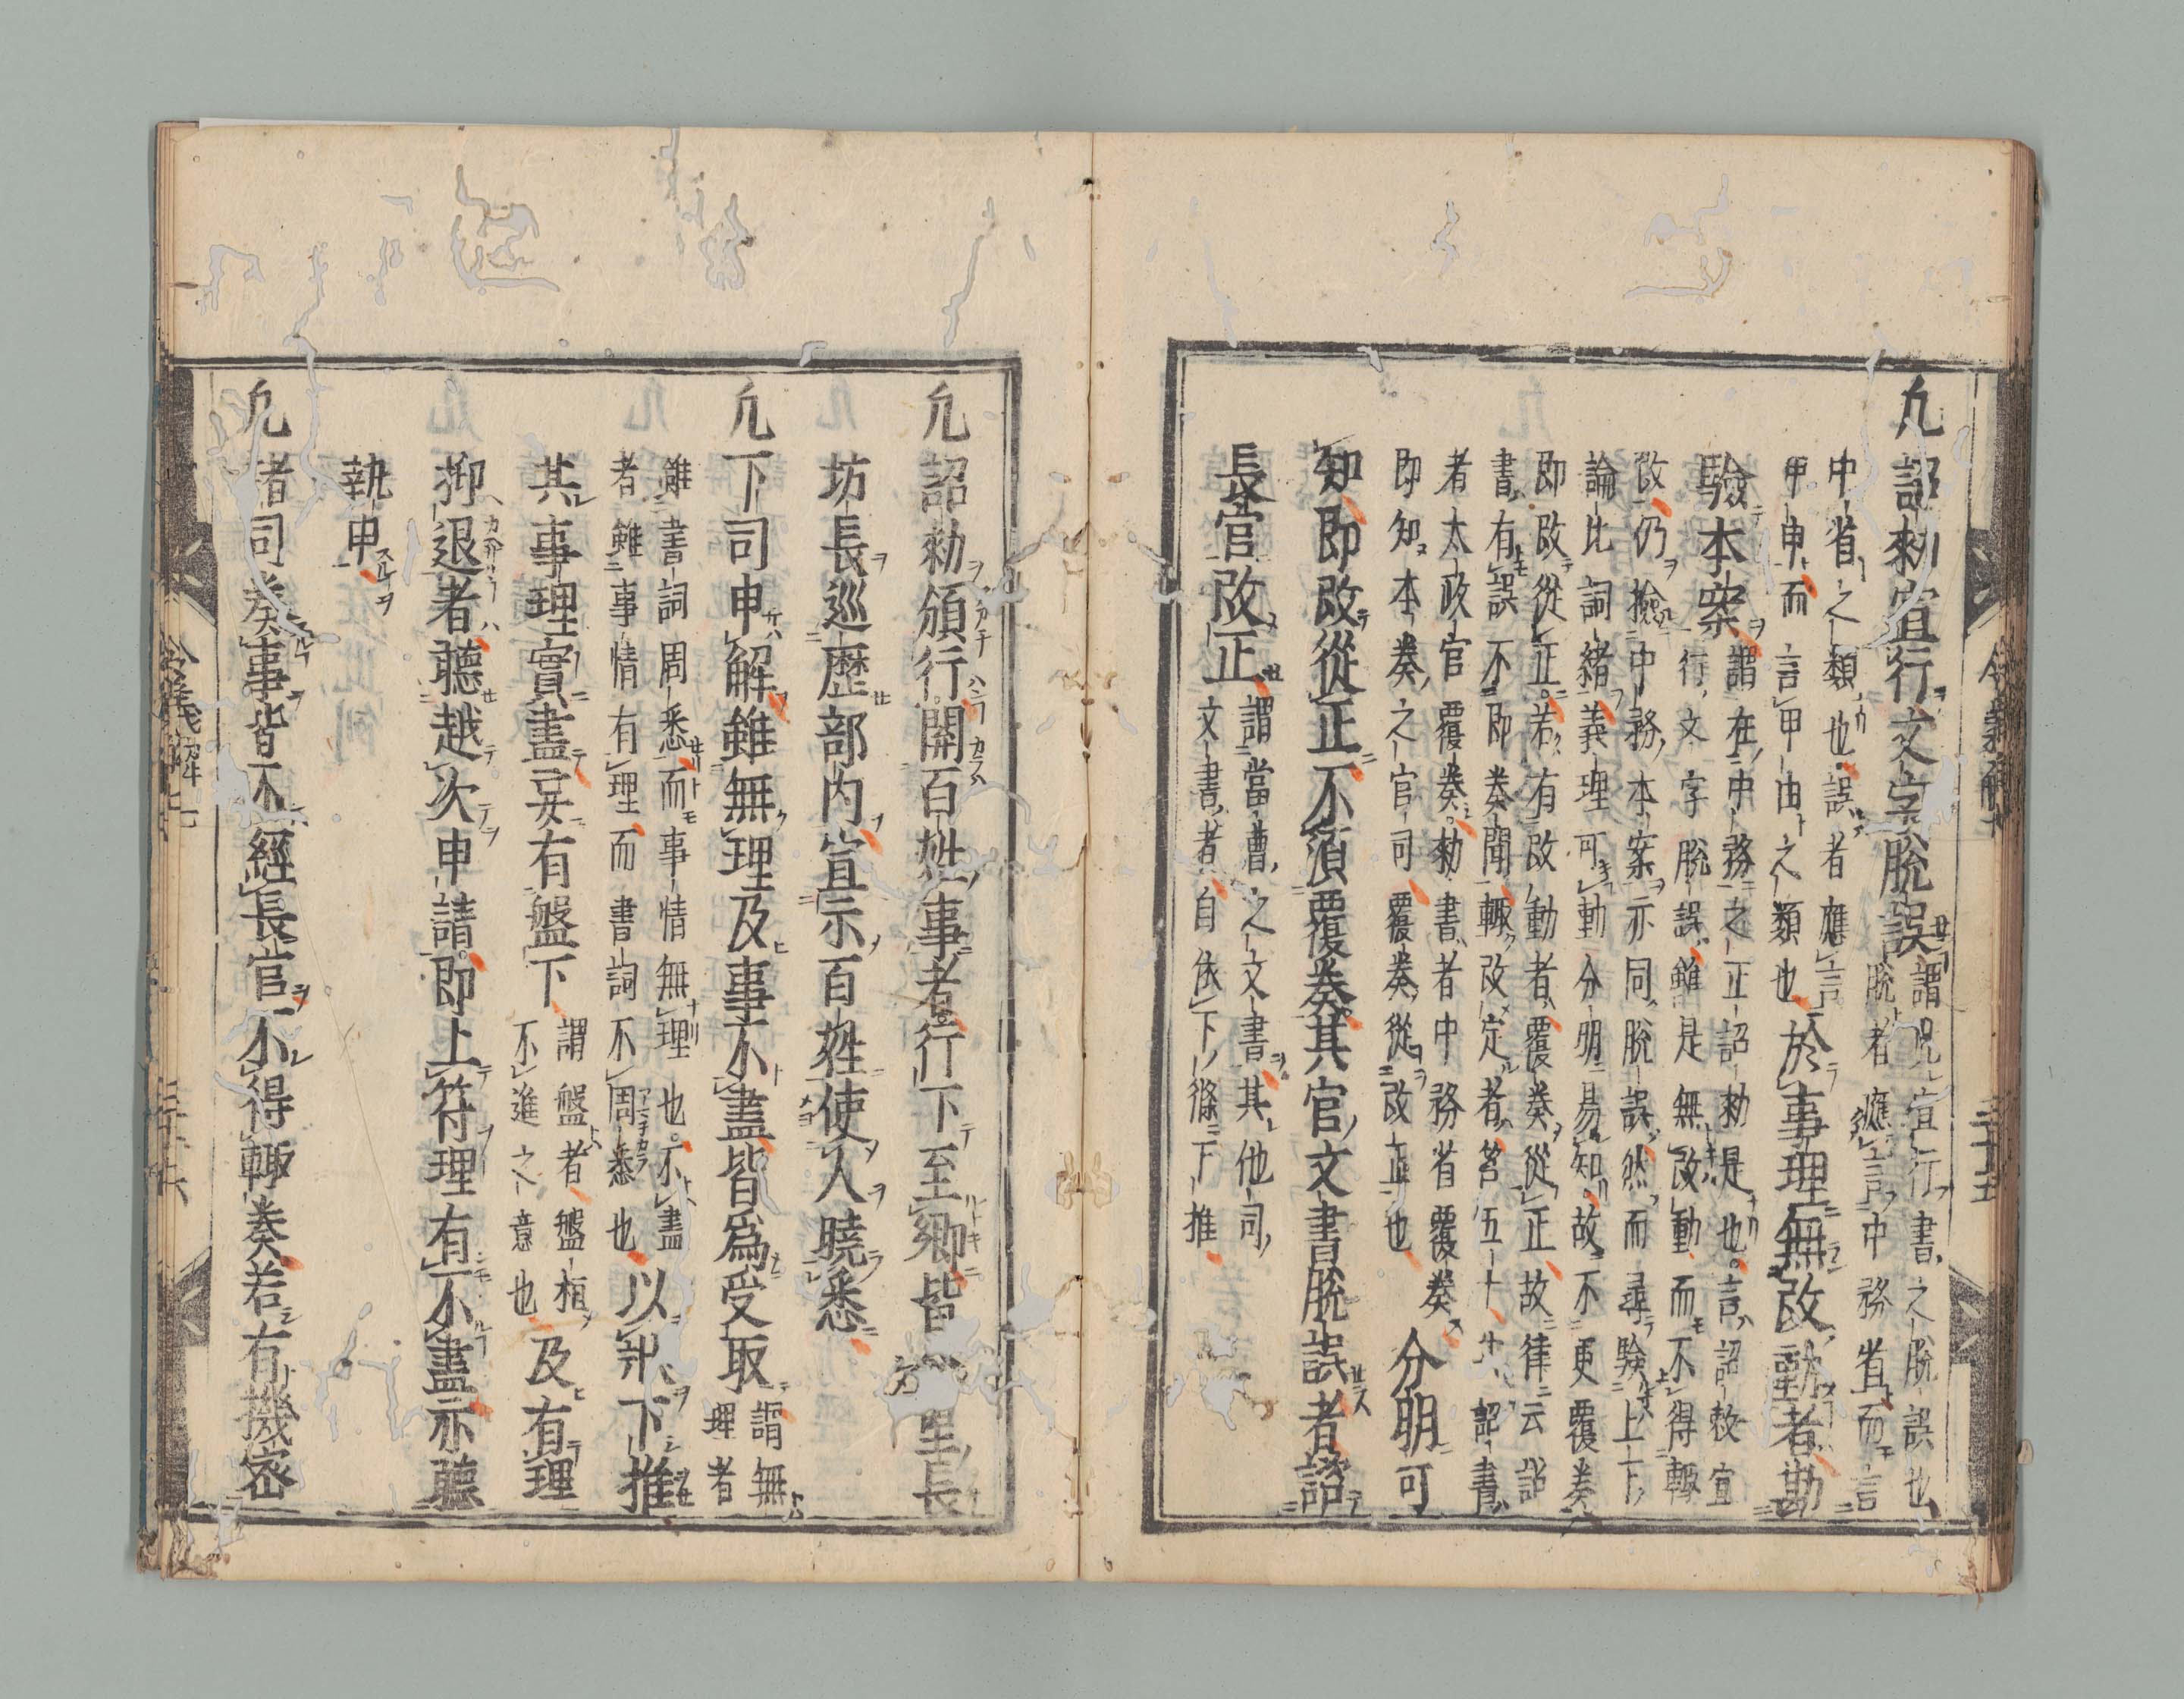 令義解七
三十五
凢詔勅宣行文字脱誤
謂凢宣行書之脱誤也
脱者應言中務省而言
中省之類也誤者應言
甲申而言甲由之類也
於事理無改動者勘
驗本案
謂在中務之正詔勅是也言詔敕宣
行文字脱誤雖是無改動而不得輙
改仍撿中務本案亦同脱誤然而尋驗上下
論比詞緒義理可動分明易知故不更覆奏
即改從正若有改動者覆奏從正故律云詔
書有誤不即奏聞輙改定者笞五十詔書
者太政官覆奏勅書者中務省覆奏
即知本奏之官司覆奏從改正也
分明可
知即改從正不須覆奏其官文書脱誤者諮
長官改正
謂當曹之文書其他司
文書者自依下條下推
凢詔勅頒行關百姓事者行下至鄉皆里長
坊長巡歷部内宣示百姓使人曉悉
凢下司申解雖無理及事不盡皆爲受取
謂無
理者
雖書詞周悉而事情無理也不盡
者雖事情有理而書詞不周悉也
以狀下推
其事理實盡妄有盤下
謂盤者盤桓
不進之意也
及有理
抑退者聽越次申請即上符理有不盡亦聽
執申
凢諸司奏事皆不經長官不得輙奏若有機密
令義解七
三十六